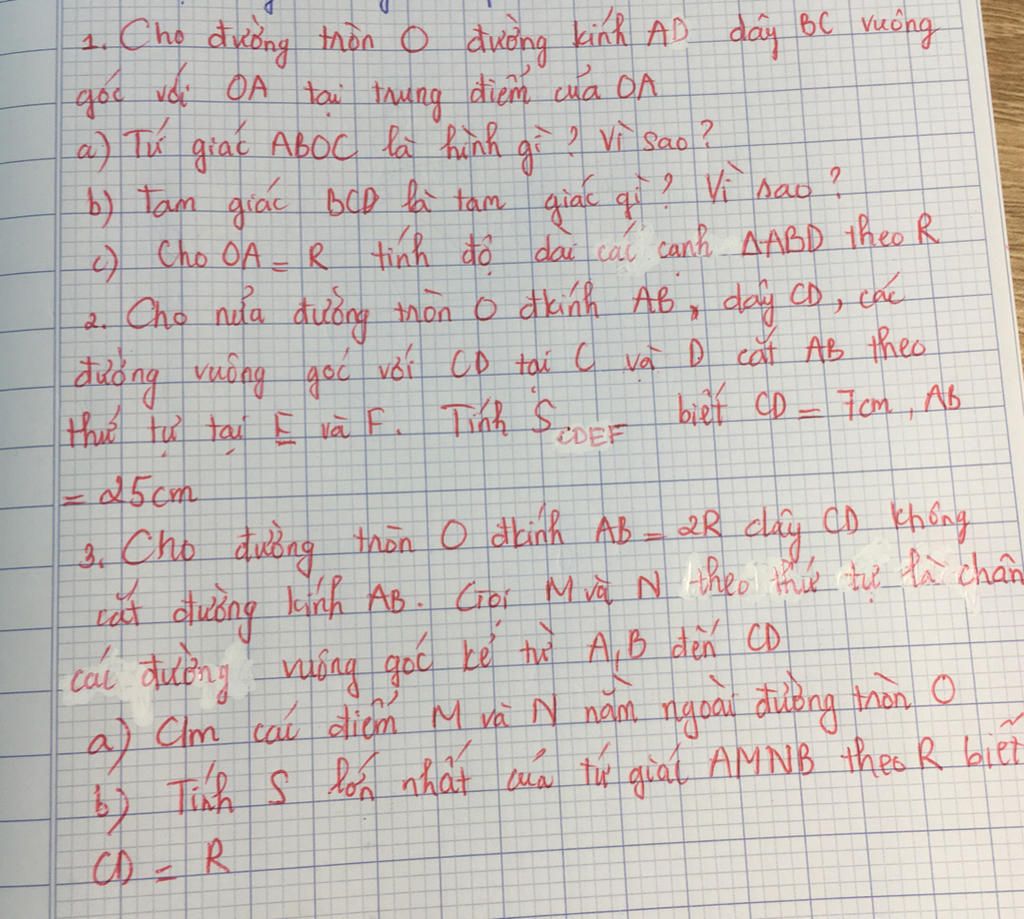 1. Cho đường tròn O đường kính AD dây BC vuông
góc với OA tại trung điểm của OA
a) Tứ giác ABOC là hình gì? Vì sao?
b) Tam giác BCD là tam giác gì? Vì sao?
c) Cho OA = R tính độ dài các cạnh ΔABD theo R
2. Cho nửa đường tròn O đkính AB, dây CD, các
đường vuông góc với CD tại C và D cắt AB theo
thứ tự tại E và F. Tính S CDEF biết CD = 7cm, AB
= 25cm
3. Cho đường tròn O đkính AB = 2R dây CD không
cắt đường kính AB. Gọi M và N theo thứ tự là chân
các đường vuông góc kẻ từ A, B đến CD
a) Cm các điểm M và N nằm ngoài đường tròn O
b) Tính S lớn nhất của tứ giác AMNB theo R biết
CD = R